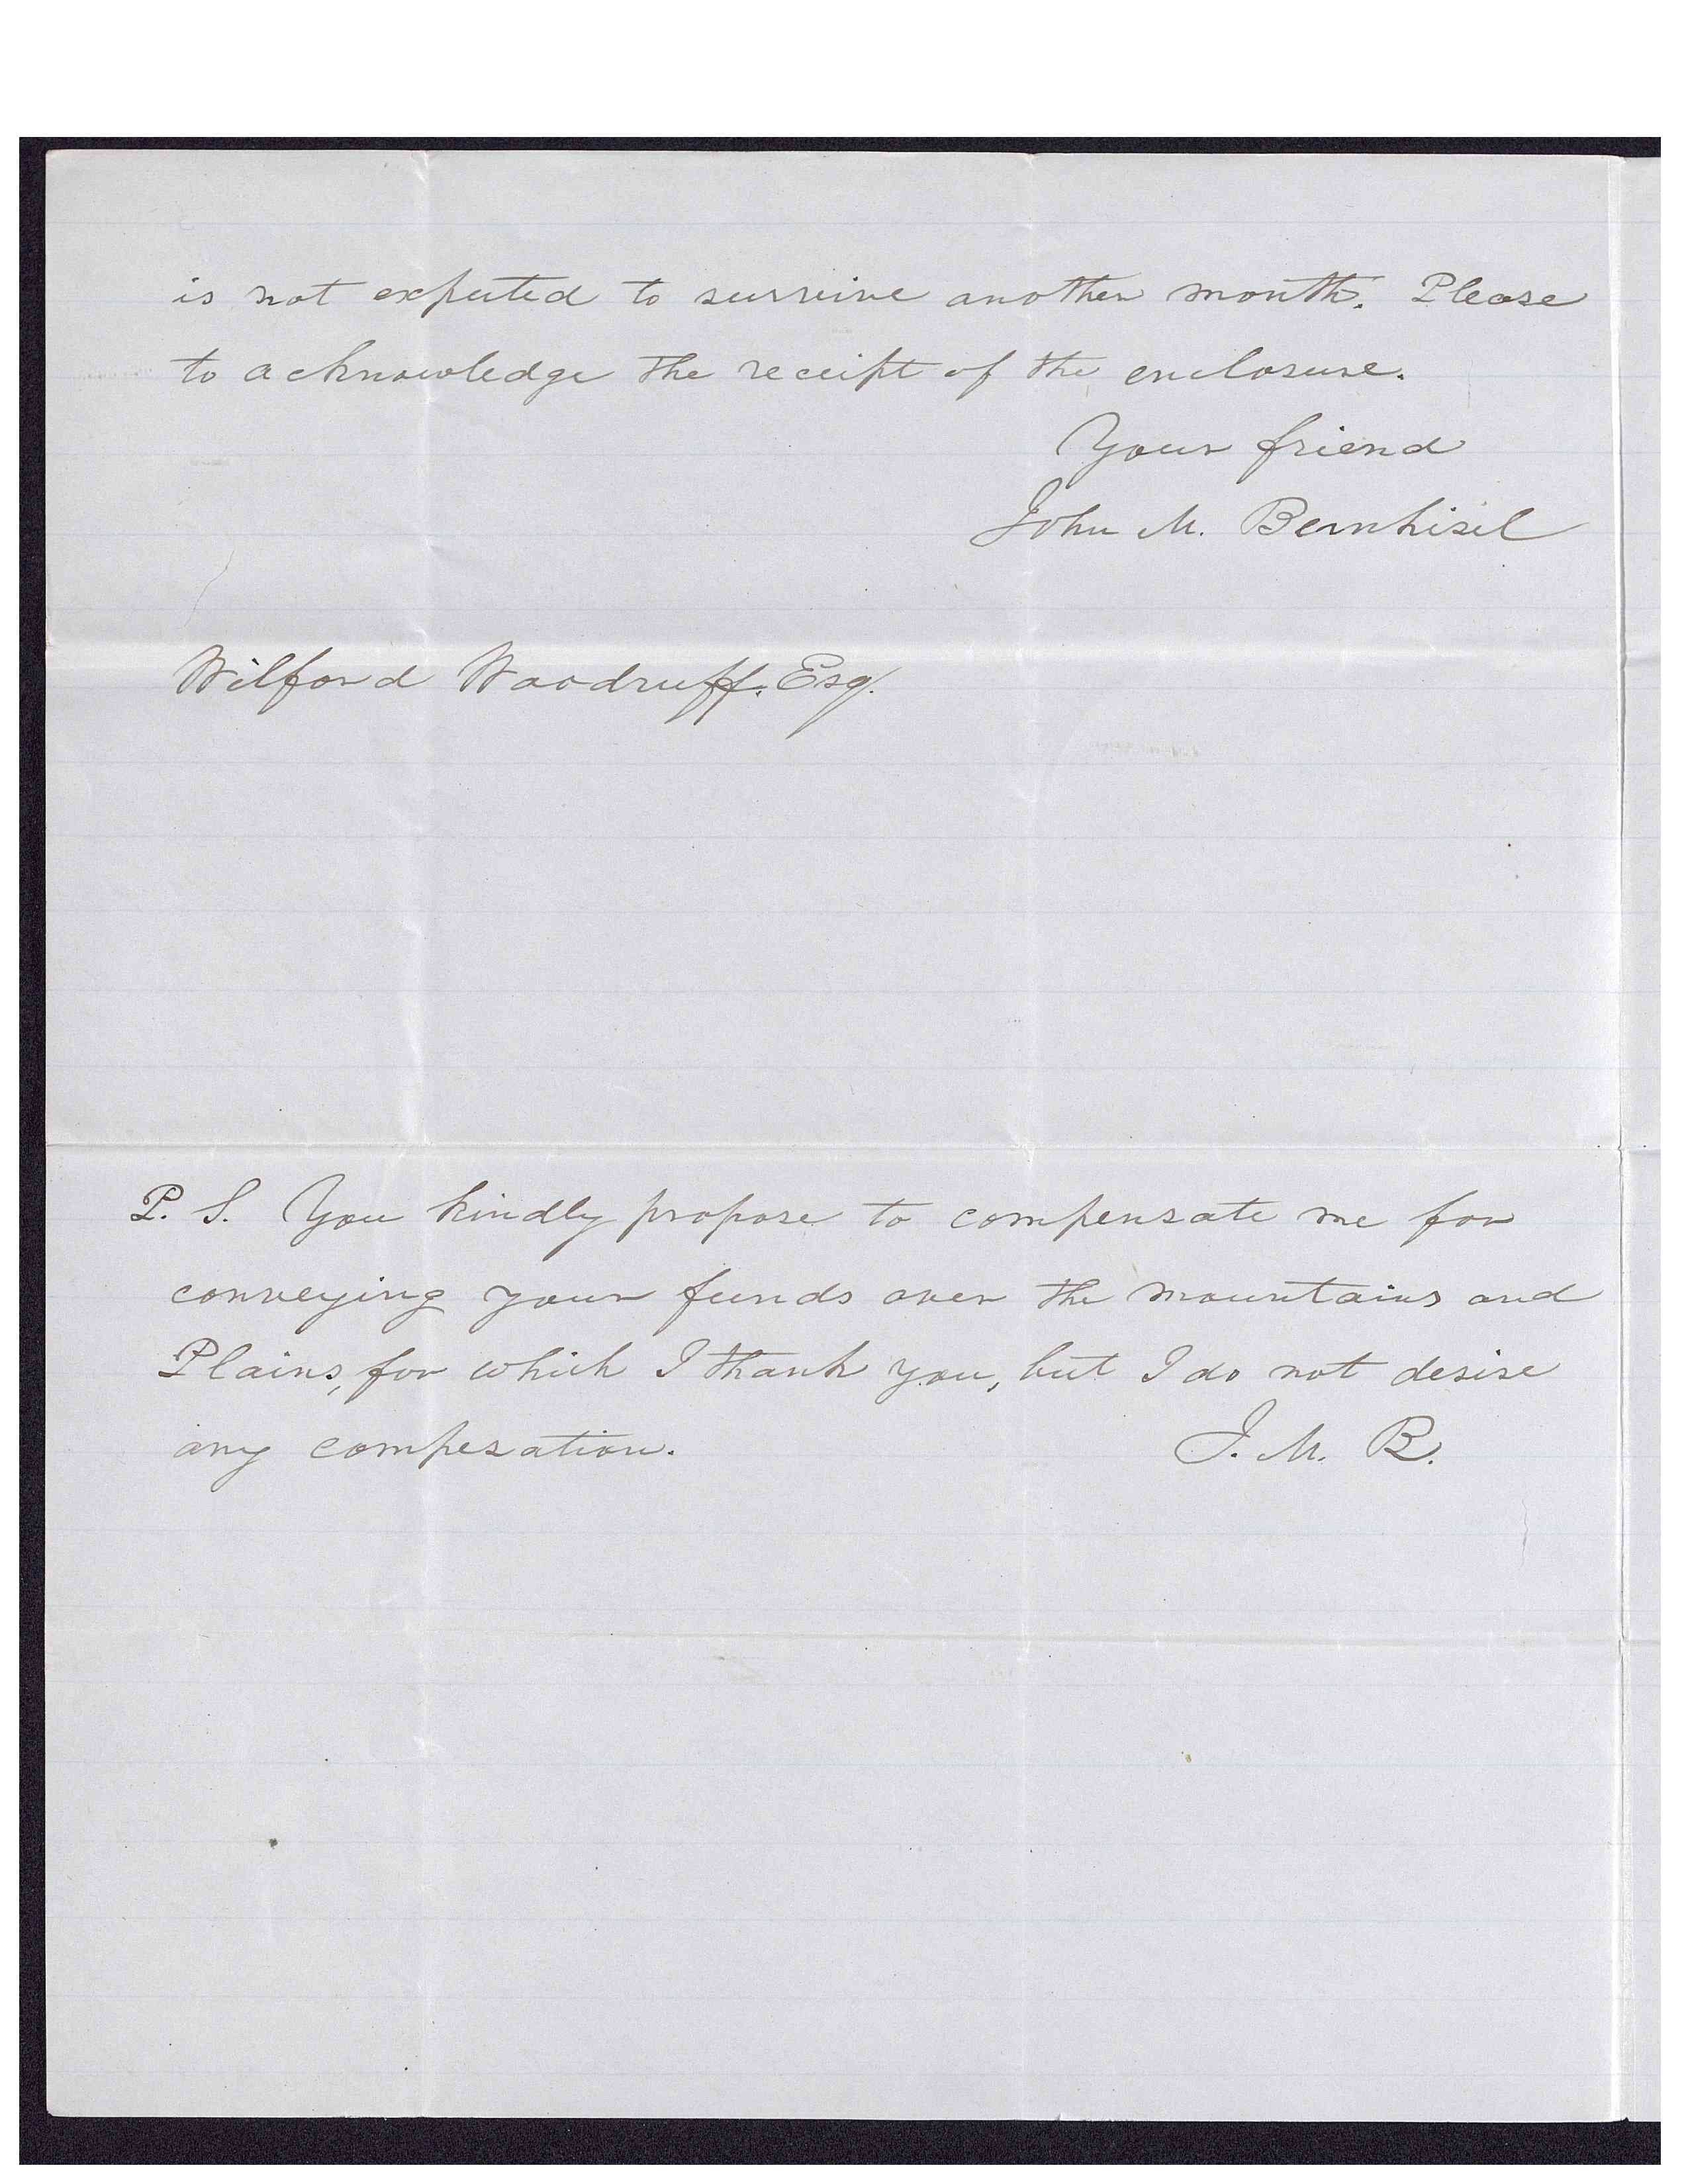 is not expected to survive another month. Please
to acknowledge the receipt of the enclosure.
Your friend
John M. Bernhisel
Wilford Woodruff. Esq.
P. S. You kindly propose to compensate me for
conveying your funds over the mountains and
Plains, for which I thank you, but I do not desire
any compesation. J. M. B.